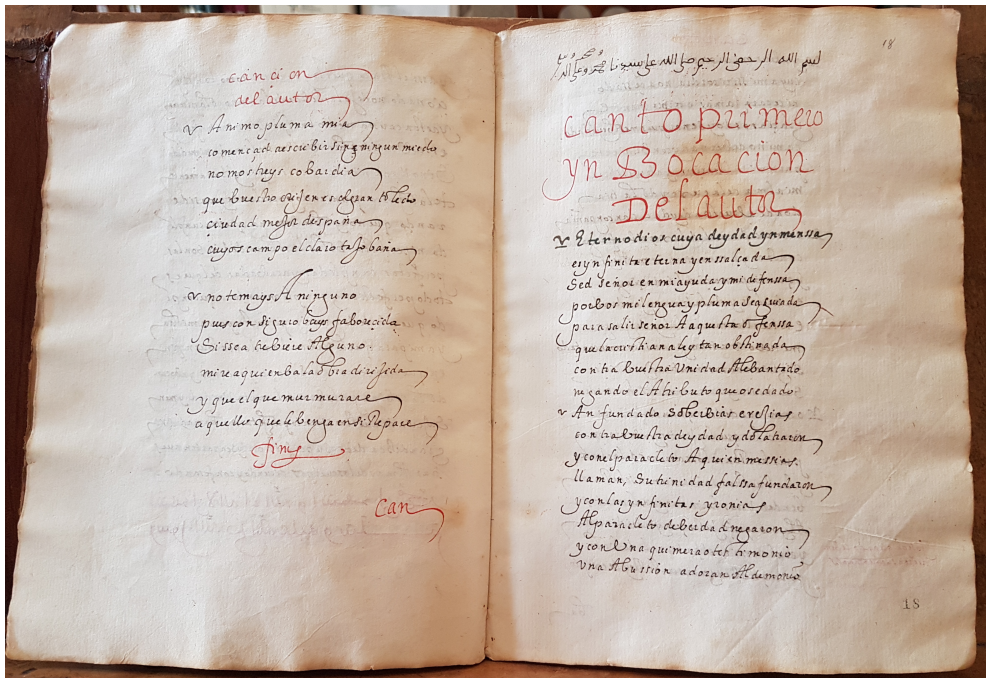 cancion
del autor
Animo pluma mia
començad a escribir sin ningun miedo
no mostreys cobardia
que buestro orijen es el gran toledo
ciudad mejor despaña
cuyos campo el claro tajo baña
no temays A ninguno
pues con siguro bays faborecida
Si ssea tebiere Alguno
mire a quien ba la obra dirijida
y que el que murmurare
a quello que le benga en si Repare
finis
Can
18
بسم الله الرحمن الرحيم صلى الله على سيدنا محمد وعلى اله
canto primero
yn Bocacion
Del autor
Eterno dios cuya deydad ynmenssa
es ynfinita eterna y enssalçada
Sed señor en mi ayuda y mi defenssa
por bos mi lengua y pluma sea guiada
para salir señor A aquesta ofenssa
que la cristiana ley tan obstinada
contra buestra Unidad A lebantado
negando el Atributo que os e dado
An fundado Soberbias erejias
contra buestra deydad ydolatraron
y con el paracleto A quien messias
llaman, Su trinidad falssa fundaron
y con las ynfinitas yronias
Al paracleto de berdad negaron
y con Una quimera o testimonio
Una Abussion adoran Al demonio
18